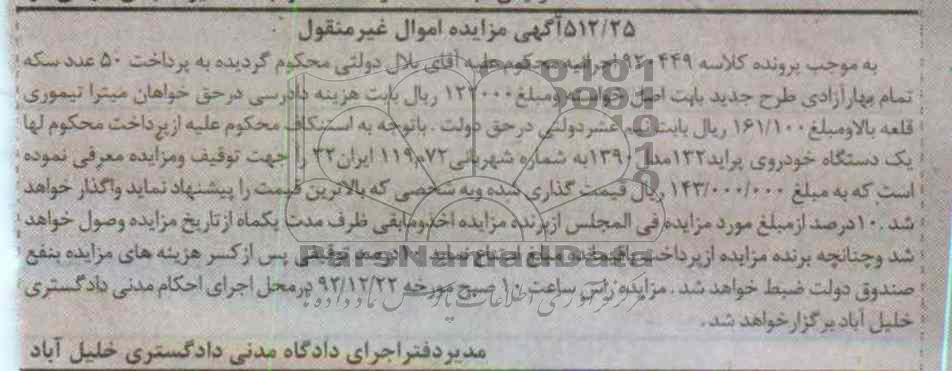 ۵۱۲/۲۵آگهی مزایده اموال غیرمنقول
به موجب پرونده کلاسه ۹۲۰۴۴۹ اجرائیه محکوم علیه آقای بلال دولتی محکوم گردیده به پرداخت ۵۰ عدد سکه
تمام بهارآزادی طرح جدید بابت اصل خواسته ومبلغ ۱۲۲۰۰۰ ریال بابت هزینه دادرسی درحق خواهان میترا تیموری
قلعه بالاومبلغ ۱۶۱/۱۰۰ ریال بابت نیم عشردولتی درحق دولت . باتوجه به استنکاف محکوم علیه ازپرداخت محکوم لها
یک دستگاه خودروی پراید۱۳۲مدل ۱۳۹۰به شماره شهربانی۷۲م۱۱۹ ایران۳۲ را جهت توقیف ومزایده معرفی نموده
است که به مبلغ ۱۴۳/۰۰۰/۰۰۰ ریال قیمت گذاری شده وبه شخصی که بالاترین قیمت را پیشنهاد نماید واگذار خواهد
شد . ۱۰درصد ازمبلغ مورد مزایده فی المجلس ازبرنده مزایده اخذومابقی ظرف مدت یکماه ازتاریخ مزایده وصول خواهد
شد وچنانچه برنده مزایده ازپرداخت باقیمانده مبلغ امتناع نماید ۱۰درصد توقیفی پس ازکسر هزینه های مزایده بنفع
صندوق دولت ضبط خواهد شد . مزایده راس ساعت ۱۰ صبح مورخه ۹۳/۱۲/۲۲ درمحل اجرای احکام مدنی دادگستری
خلیل آباد برگزارخواهد شد .
مدیردفتراجرای دادگاه مدنی دادگستری خلیل آباد
ParsNamadData